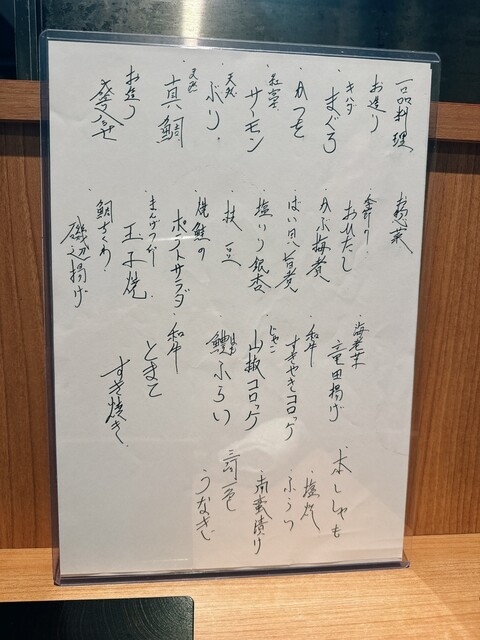 一品料理
お造り
・キハダ
まぐろ
・かつを
・サーモン
・天然
ぶり
・天然
真鯛
・お造り
盛合せ
お惣菜
おひたし
・かぶ梅煮
・ばい貝旨煮
・塩いり銀杏
・枝豆
・焼鮭の
ポテトサラダ
玉子焼
・鯛ちくわ
磯辺揚げ
・海老芋
竜田揚げ
・和牛
すきやきコロッケ
・じゃこ
山椒コロッケ
・鱧ふらい
・和牛
とまと
すき焼き
・本ししゃも
・塩焼
・ふらい
・南蛮漬け
三河一色
うなぎ